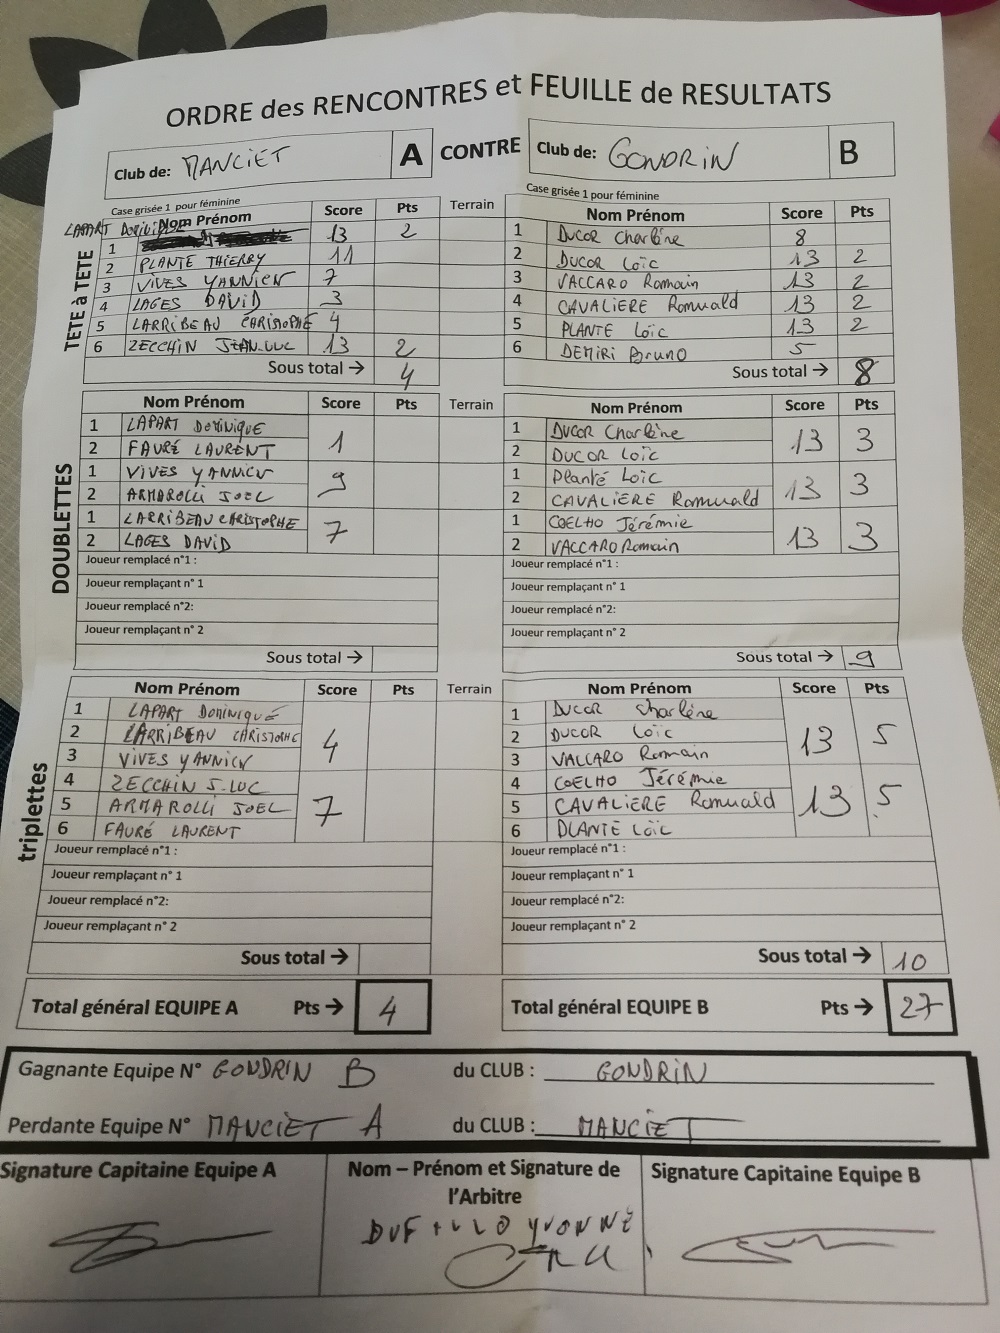 ORDRE des RENCONTRES et FEUILLE de RESULTATS
Club de: MANCIET A CONTRE Club de: GONDRIN B
Case grisée 1 pour féminine Case grisée 1 pour féminine
Nom Prénom Score Pts Terrain Nom Prénom Score Pts
TETE à TETE
1 LAPART DOMINIQUE 13 2 1 DUCOR Charlène 8
2 PLANTE THIERRY 11 2 DUCOR Loïc 13 2
3 VIVES YANNICK 7 3 VACCARO Romain 13 2
4 LAGES DAVID 3 4 CAVALIERE Romuald 13 2
5 LARRIBEAU CARISTOPHE 4 5 PLANTE Loïc 13 2
6 ZECCHIN JEAN-LUC 13 2 6 DEMIRI Bruno 5
Sous total → 4 Sous total → 8
Nom Prénom Score Pts Terrain Nom Prénom Score Pts
DOUBLETTES
1 LAPART DOMINIQUE 1 1 DUCOR Charlène 13 3
2 FAURÉ LAURENT 2 DUCOR Loïc
1 VIVES YANNICK 9 1 Planté Loïc 13 3
2 ARMAROLLI JOEL 2 CAVALIERE Romuald
1 LARRIBEAU CARISTOPHE 7 1 COELHO Jérémie 13 3
2 LAGES DAVID 2 VACCARO Romain
Joueur remplacé n°1 : Joueur remplacé n°1 :
Joueur remplaçant n° 1 Joueur remplaçant n° 1
Joueur remplacé n°2: Joueur remplacé n°2:
Joueur remplaçant n° 2 Joueur remplaçant n° 2
Sous total → Sous total → 9
Nom Prénom Score Pts Terrain Nom Prénom Score Pts
triplettes
1 LAPART DOMINIQUÉ 4 1 DUCOR Charlène 13 5
2 LARRIBEAU CARISTOPHE 2 DUCOR Loïc
3 VIVES YANNICK 3 VACCARO Romain
4 ZECCHIN J-LUC 7 4 COELHO Jérémie 13 5
5 ARMAROLLI JOEL 5 CAVALIERE Romuald
6 FAURÉ LAURENT 6 PLANTE Loïc
Joueur remplacé n°1 : Joueur remplacé n°1 :
Joueur remplaçant n° 1 Joueur remplaçant n° 1
Joueur remplacé n°2: Joueur remplacé n°2:
Joueur remplaçant n° 2 Joueur remplaçant n° 2
Sous total → Sous total → 10
Total général EQUIPE A Pts → 4 Total général EQUIPE B Pts → 27
Gagnante Equipe N° GONDRIN B du CLUB : GONDRIN
Perdante Equipe N° MANCIET A du CLUB : MANCIET
Signature Capitaine Equipe A Nom – Prénom et Signature de l'Arbitre Signature Capitaine Equipe B
YVONNE